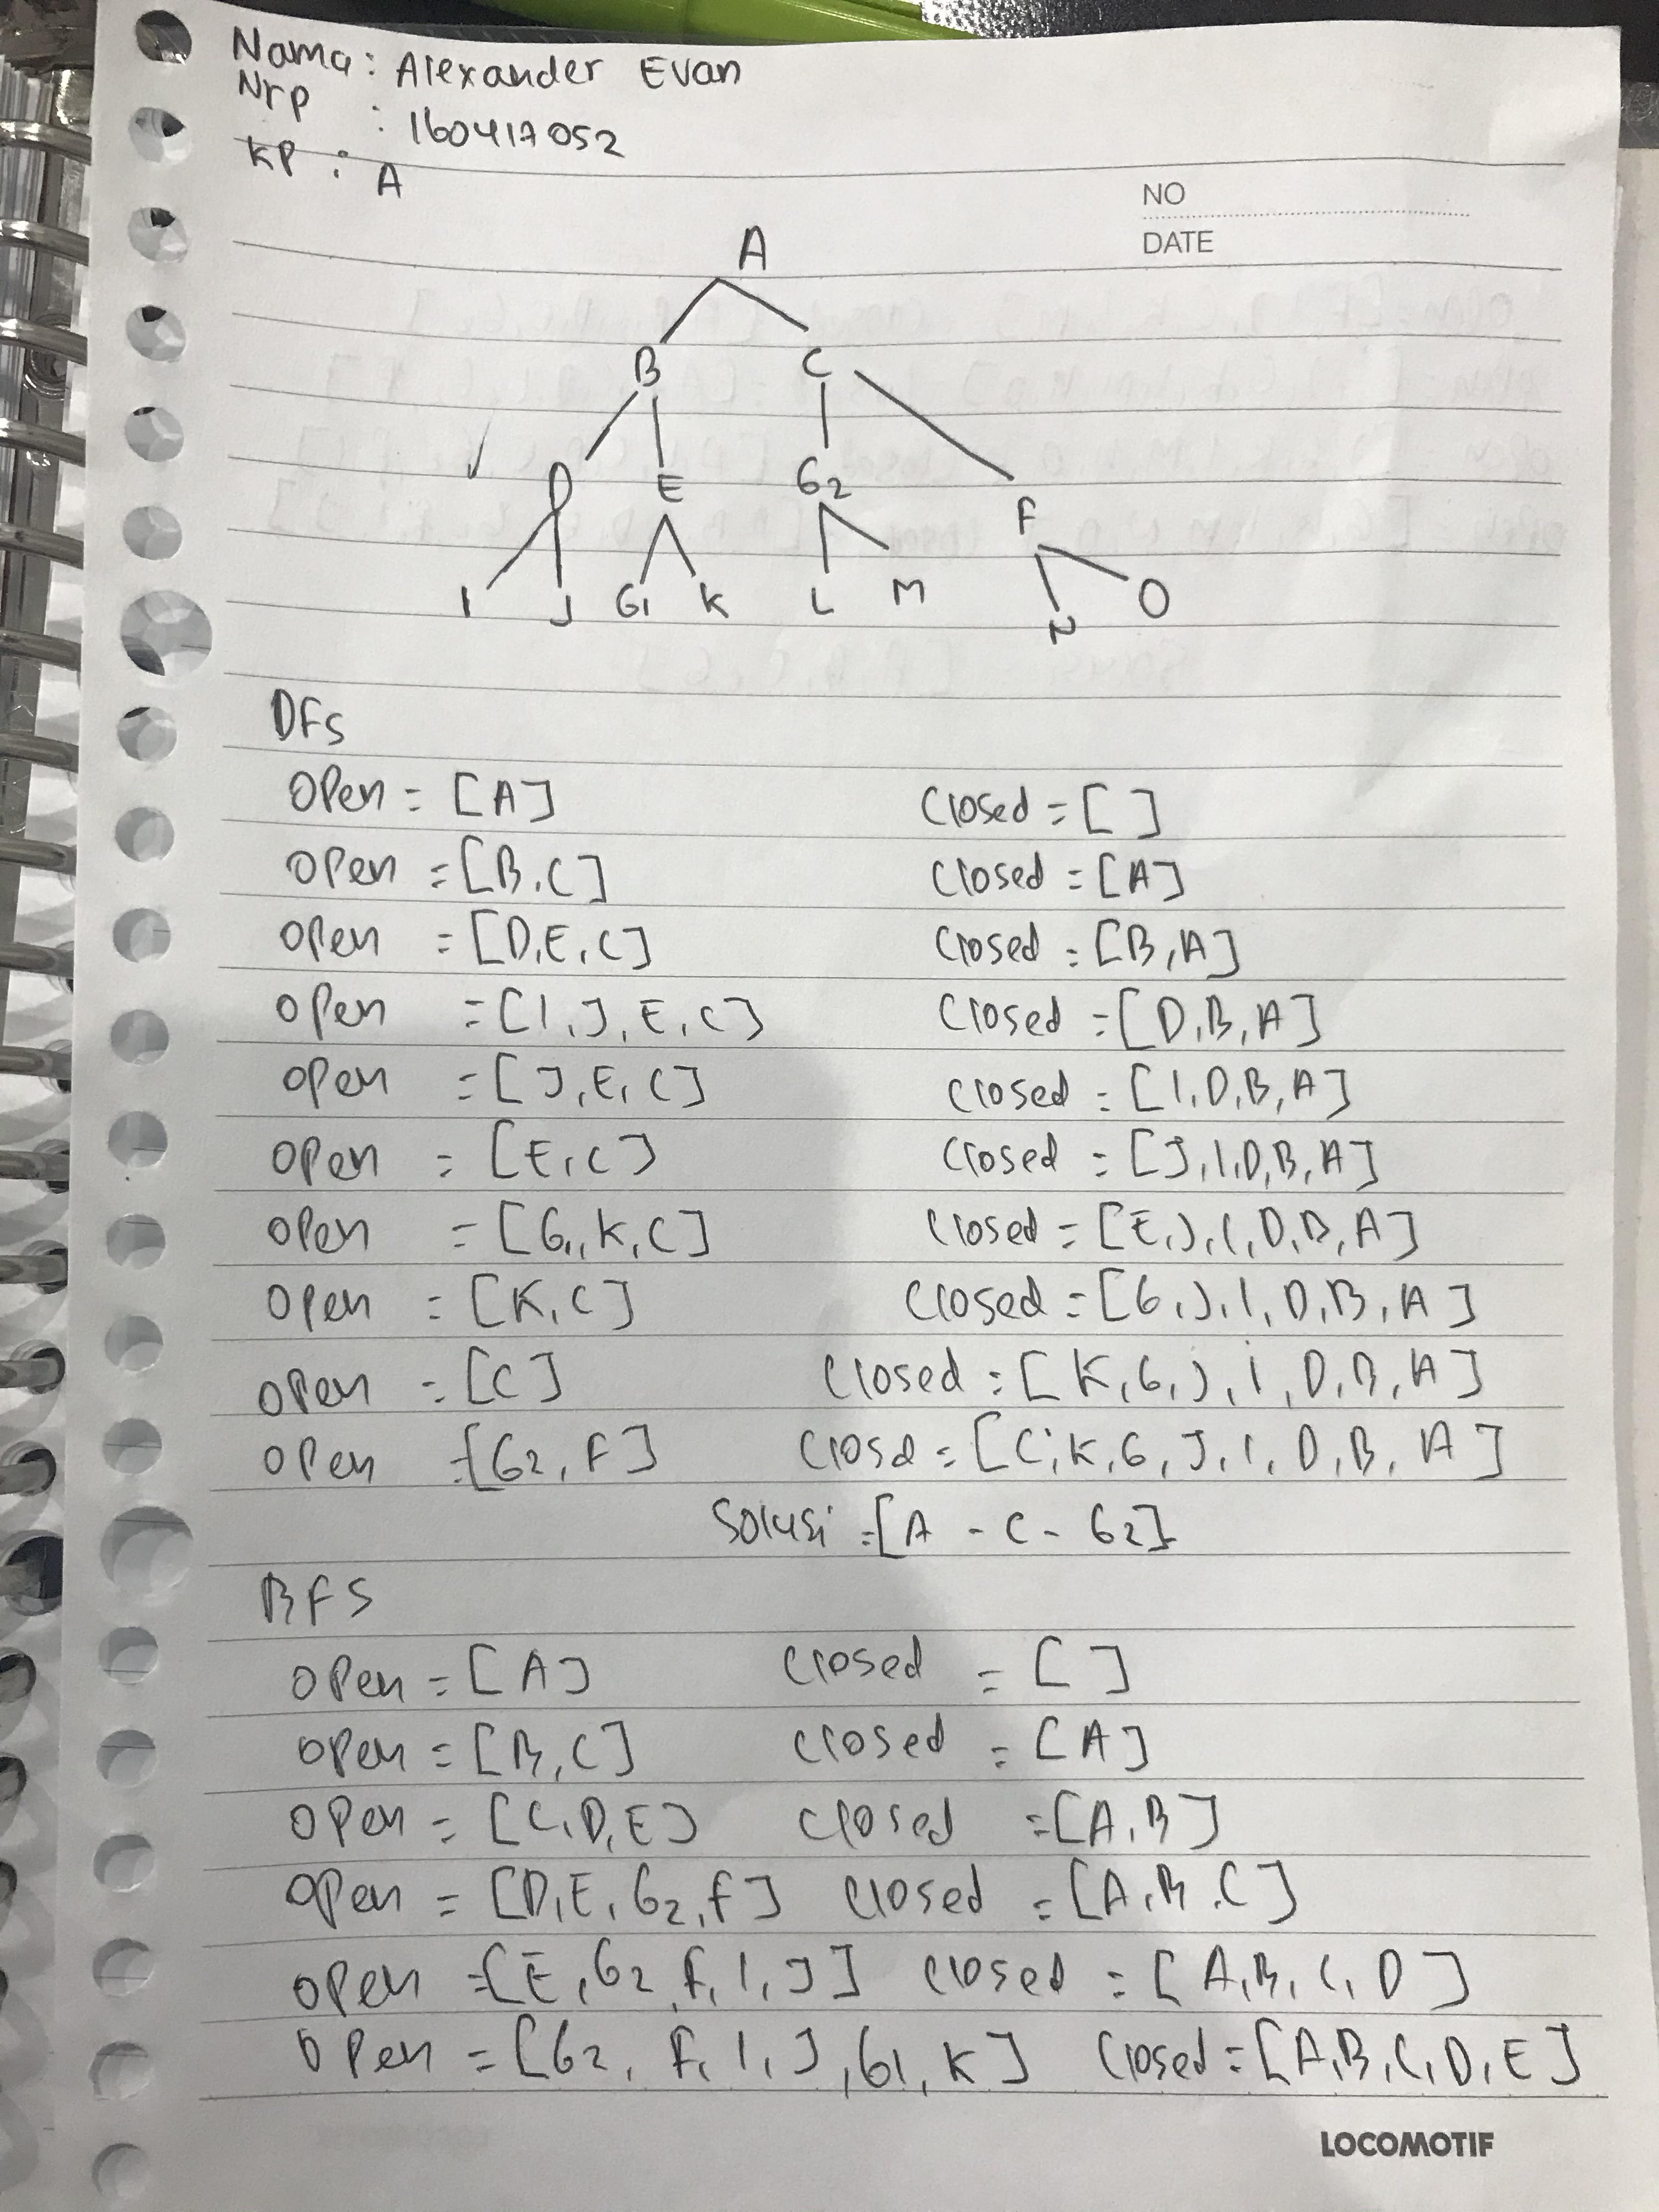 Nama : Alexander Evan
Nrp : 160417052
KP : A
NO
DATE
A
B C
D E G2 F
I J G1 K L M N O
DFS
Open = [A] Closed = [ ]
Open = [B,C] Closed = [A]
Open = [D,E,C] Closed = [B,A]
Open = [I,J,E,C] Closed = [D,B,A]
Open = [J,E,C] Closed = [I,D,B,A]
Open = [E,C] Closed = [J,I,D,B,A]
Open = [G1,K,C] Closed = [E,J,I,D,B,A]
Open = [K,C] Closed = [G,J,I,D,B,A]
Open = [C] Closed = [K,G,J,I,D,B,A]
Open = [G2,F] Closd = [C,K,G,J,I,D,B,A]
Solusi = [A - C - G2]
BFS
Open = [A] Closed = [ ]
Open = [B,C] Closed = [A]
Open = [C,D,E] Closed = [A,B]
Open = [D,E,G2,F] Closed = [A,B,C]
Open = [E,G2,F,I,J] Closed = [A,B,C,D]
Open = [G2,F,I,J,G1,K] Closed = [A,B,C,D,E]
LOCOMOTIF